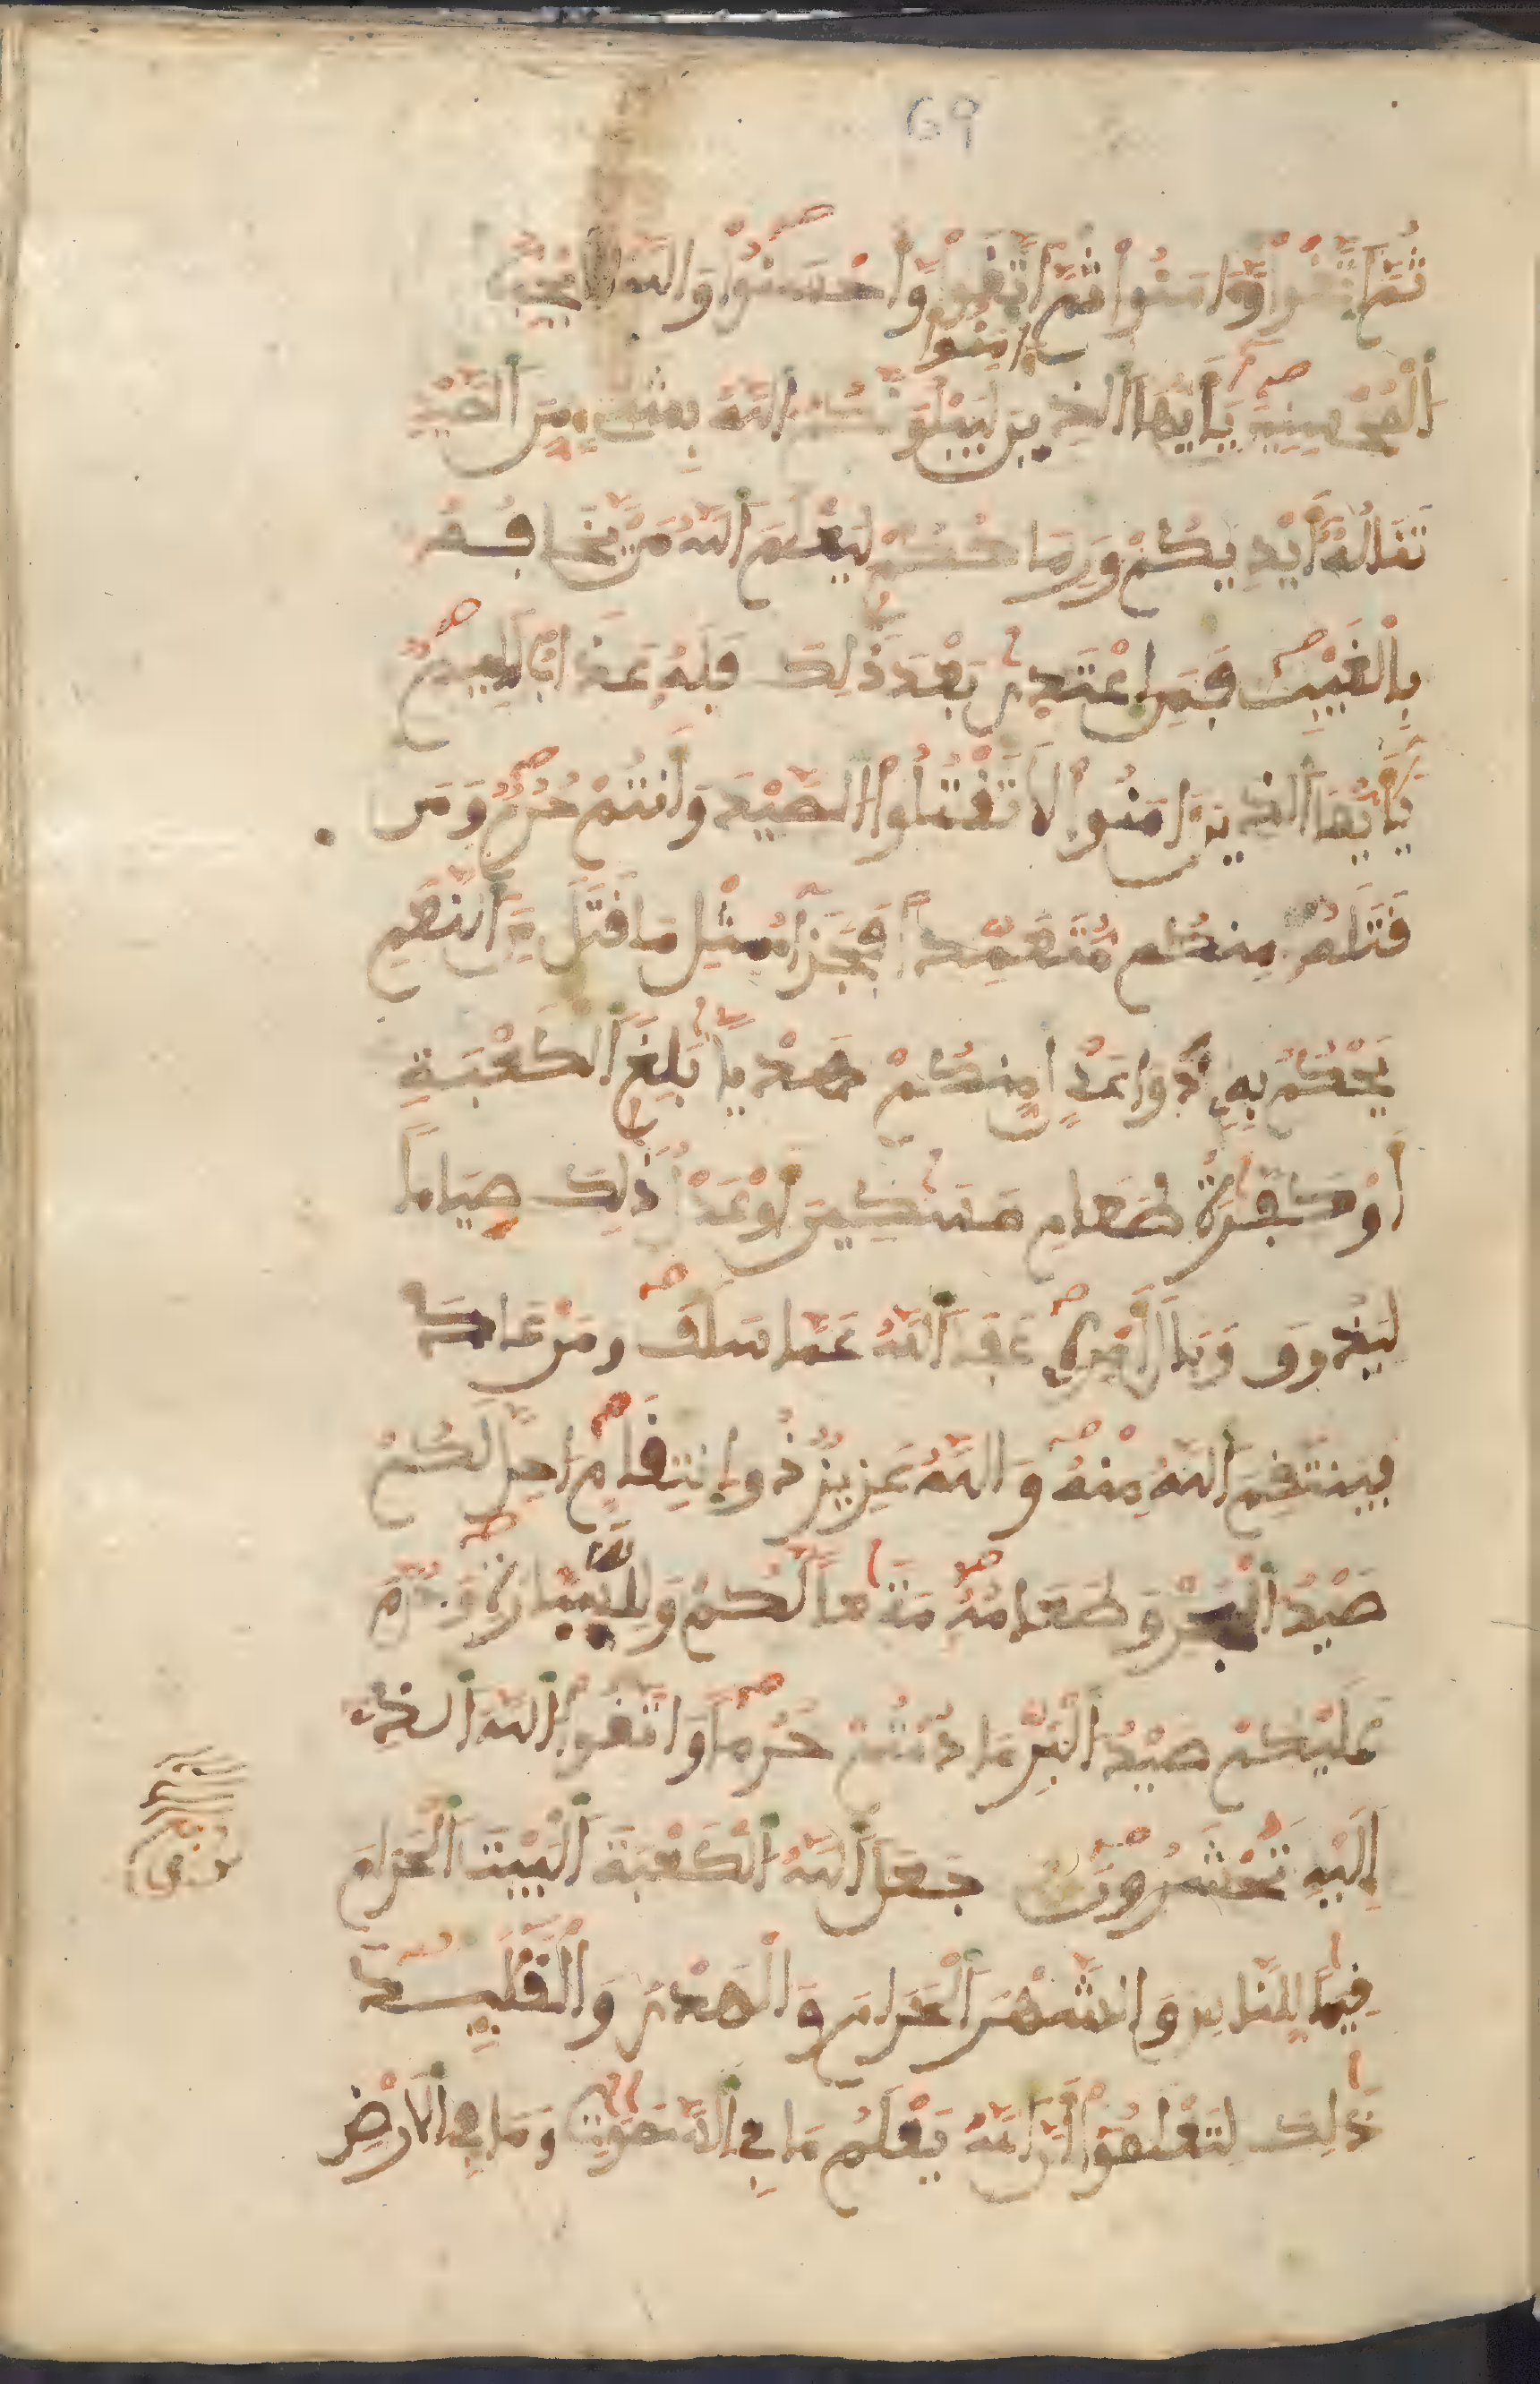 69
ثُمَّ اتَّقَوا وَّءَامَنُوا ثُمَّ اتَّقَوا وَّأَحْسَنُوا وَاللَّهُ يُحِبُّ
ءامنوا
اَلْمُحْسِنِينَ يَٰأَيُّهَا اَلذِينَ لَيَبْلُوَنَّكُمُ اُللَّهُ بِشَےْءٍ مِّنَ اَلصَّيْدِ
تَنَالُهُ أَيْدِيكُمْ وَرِمَاحُكُمْ لِيَعْلَمَ اَللَّهُ مَنْ يَّخَافُهُ
بِالْغَيْبِ فَمَنِ اعْتَدىٰ بَعْدَ ذَٰلِكَ فَلَهُ عَذَابٌ أَلِيمٌ
يَٰأَيُّهَا اَلذِينَ ءَامَنُوا لَا تَقْتُلُوا اَلصَّيْدَ وَأَنتُمْ حُرُمٌ وَمَن
قَتَلَهُ مِنكُم مُّتَعَمِّداً فَجَزَآءُ مِثْلِ مَا قَتَلَ مِنَ اَلنَّعَمِ
يَحْكُمُ بِهِ ذَوَا عَدْلٍ مِّنكُمْ هَدْياً بَٰلِغَ اَلْكَعْبَةِ
أَوْ كَفَّٰرَةُ طَعَامِ مَسَٰكِينَ أَوْ عَدْلُ ذَٰلِكَ صِيَاماً
لِّيَذُوقَ وَبَالَ أَمْرِهِ عَفَا اَللَّهُ عَمَّا سَلَفَ وَمَنْ عَادَ
فَيَنتَقِمُ اُللَّهُ مِنْهُ وَاللَّهُ عَزِيزٌ ذُو اِنتِقَامٍ احِلَّ لَكُمْ
صَيْدُ اُلْبَحْرِ وَطَعَامُهُ مَتَٰعاً لَّكُمْ وَلِلسَّيَّارَةِ وَحُرِّمَ
عَلَيْكُمْ صَيْدُ اُلْبَرِّ مَا دُمْتُمْ حُرُماً وَاتَّقُوا اُللَّهَ اَلذِے
إِلَيْهِ تُحْشَرُونَ جَعَلَ اَللَّهُ اُلْكَعْبَةَ اَلْبَيْتَ اَلْحَرَامَ
قِيَٰماً لِّلنَّاسِ وَالشَّهْرَ اَلْحَرَامَ وَالْهَدْىَ وَالْقَلَٰٓئِدَ
ذَٰلِكَ لِتَعْلَمُوا أَنَّ اَللَّهَ يَعْلَمُ مَا فِے اِلسَّمَٰوَٰتِ وَمَا فِے اِلَارْضِ